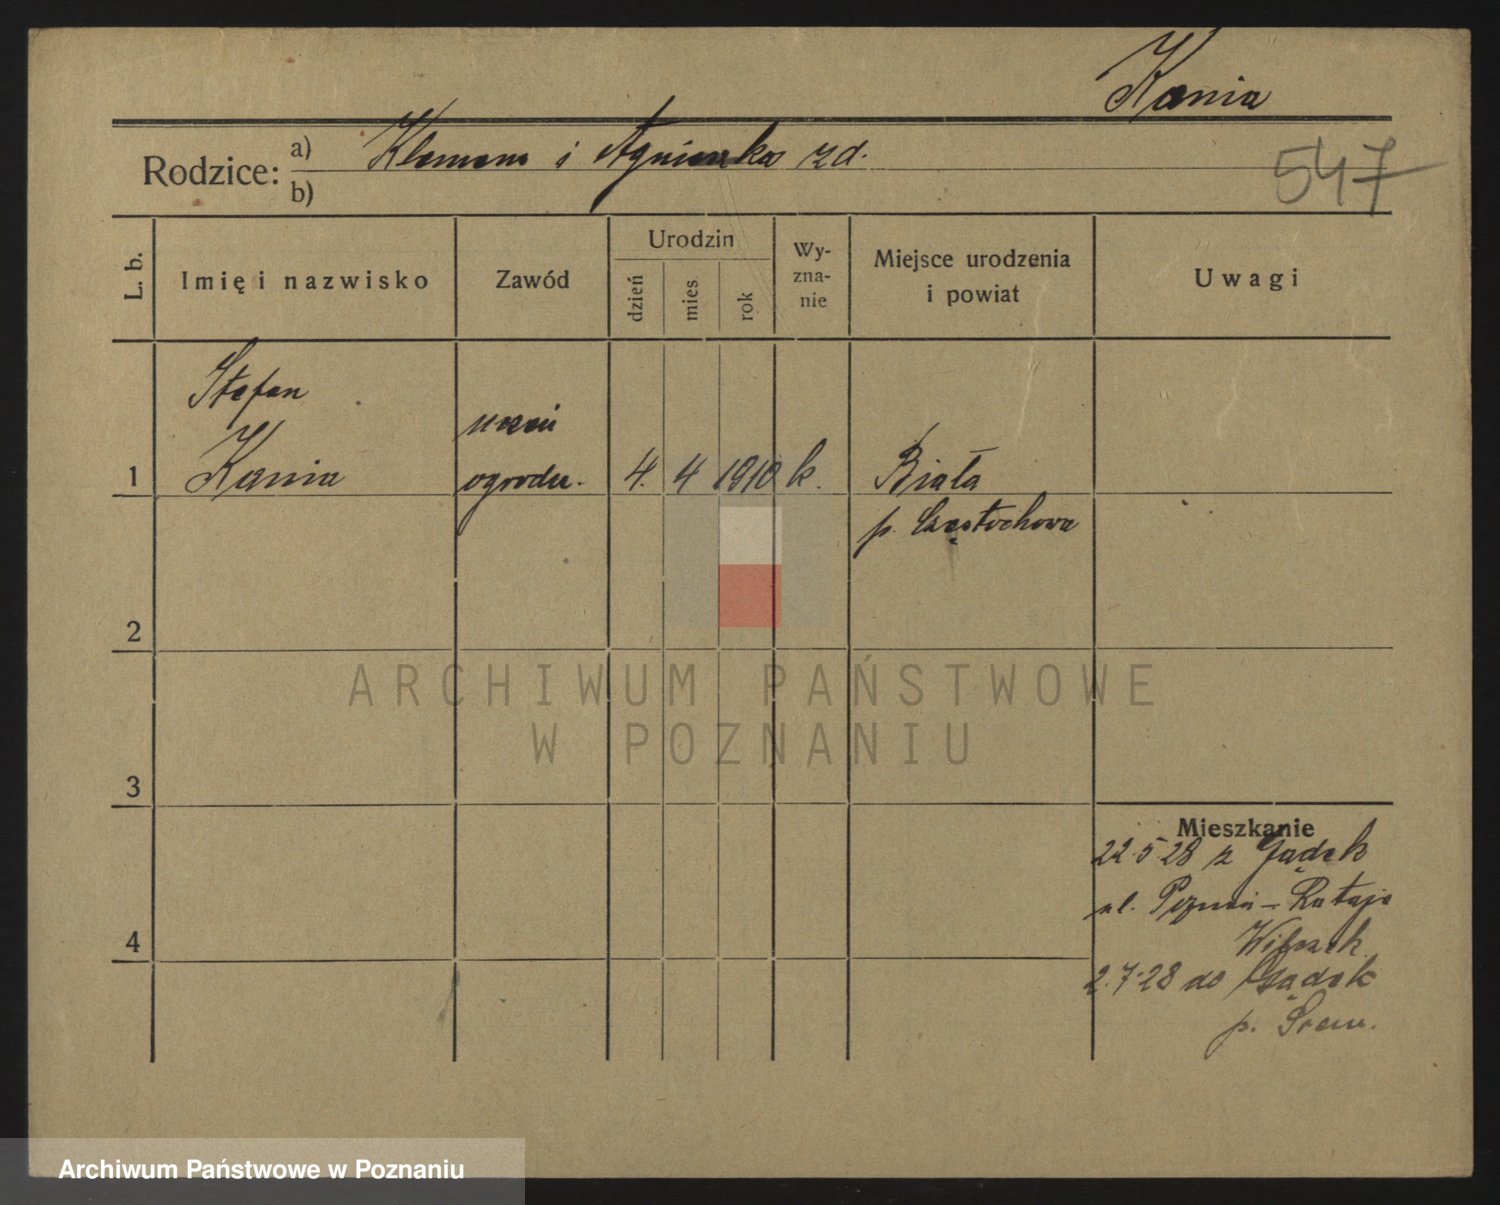 Kania
Rodzice: a) Klemens i Agnieszka zd.
b)
547
L. b.
Imię i nazwisko
Zawód
Urodzin
dzień
mies
rok
Wy-
zna-
nie
Miejsce urodzenia
i powiat
Uwagi
Stefan
uczeń
1 Kania ogrodn. 4. 4 1910 k. Biała
p. Częstochowa
2
ARCHIWUM PAŃSTWOWE
W POZNANIU
3
Mieszkanie
22.5.28 z Gądek
ul. Poznań - Rataje
4
2.7.28 do Gądek
p. Śrem.
Archiwum Państwowe w Poznaniu